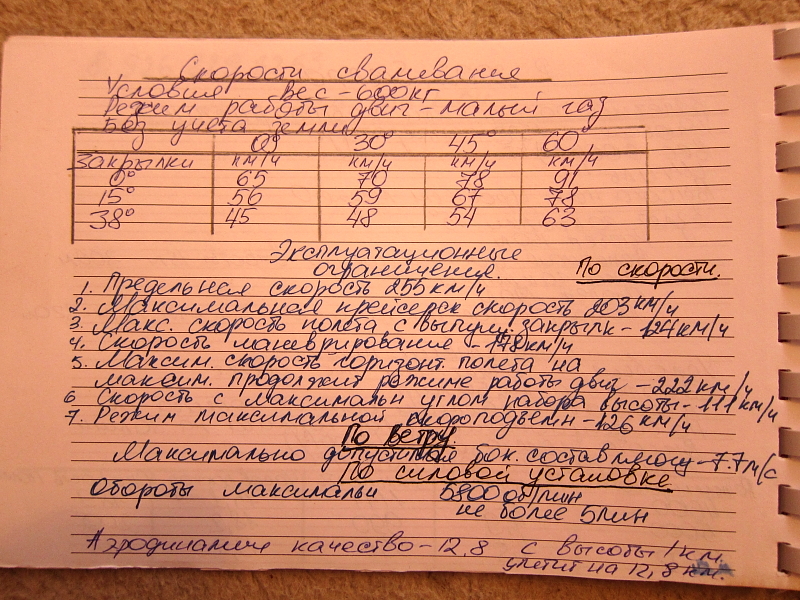 Скорости сваливания
Условия Вес-600кг
Режим работы двиг-малый газ
Без учета земли
0° 30° 45° 60°
Закрылки км/ч км/ч км/ч км/ч
0° 65 70 78 91
15° 56 59 67 78
38° 45 48 54 63
Эксплуатационные
ограничение. По скорости.
1. Предельная скорость 255км/ч
2. Максимальная крейсерск скорость 203км/ч
3. Макс. скорость полета с выпущ. закрылк-124км/ч
4. Скорость маневрирование -148км/ч
5. Максим. скорость горизонт. полета на
максим. продолжит режиме работы двиг -222км/ч
6 Скорость с максимальн углом набора высоты-111км/ч
7. Режим максимальной скороподъемн-126км/ч
По ветру.
Максимально допустимая бок. составляющ-7.7м/с
По силовой установке
Обороты максимальн 5800об/мин
не более 5мин
Аэродинамич качество-12,8 с высоты 1км.
улетит на 12,8км.